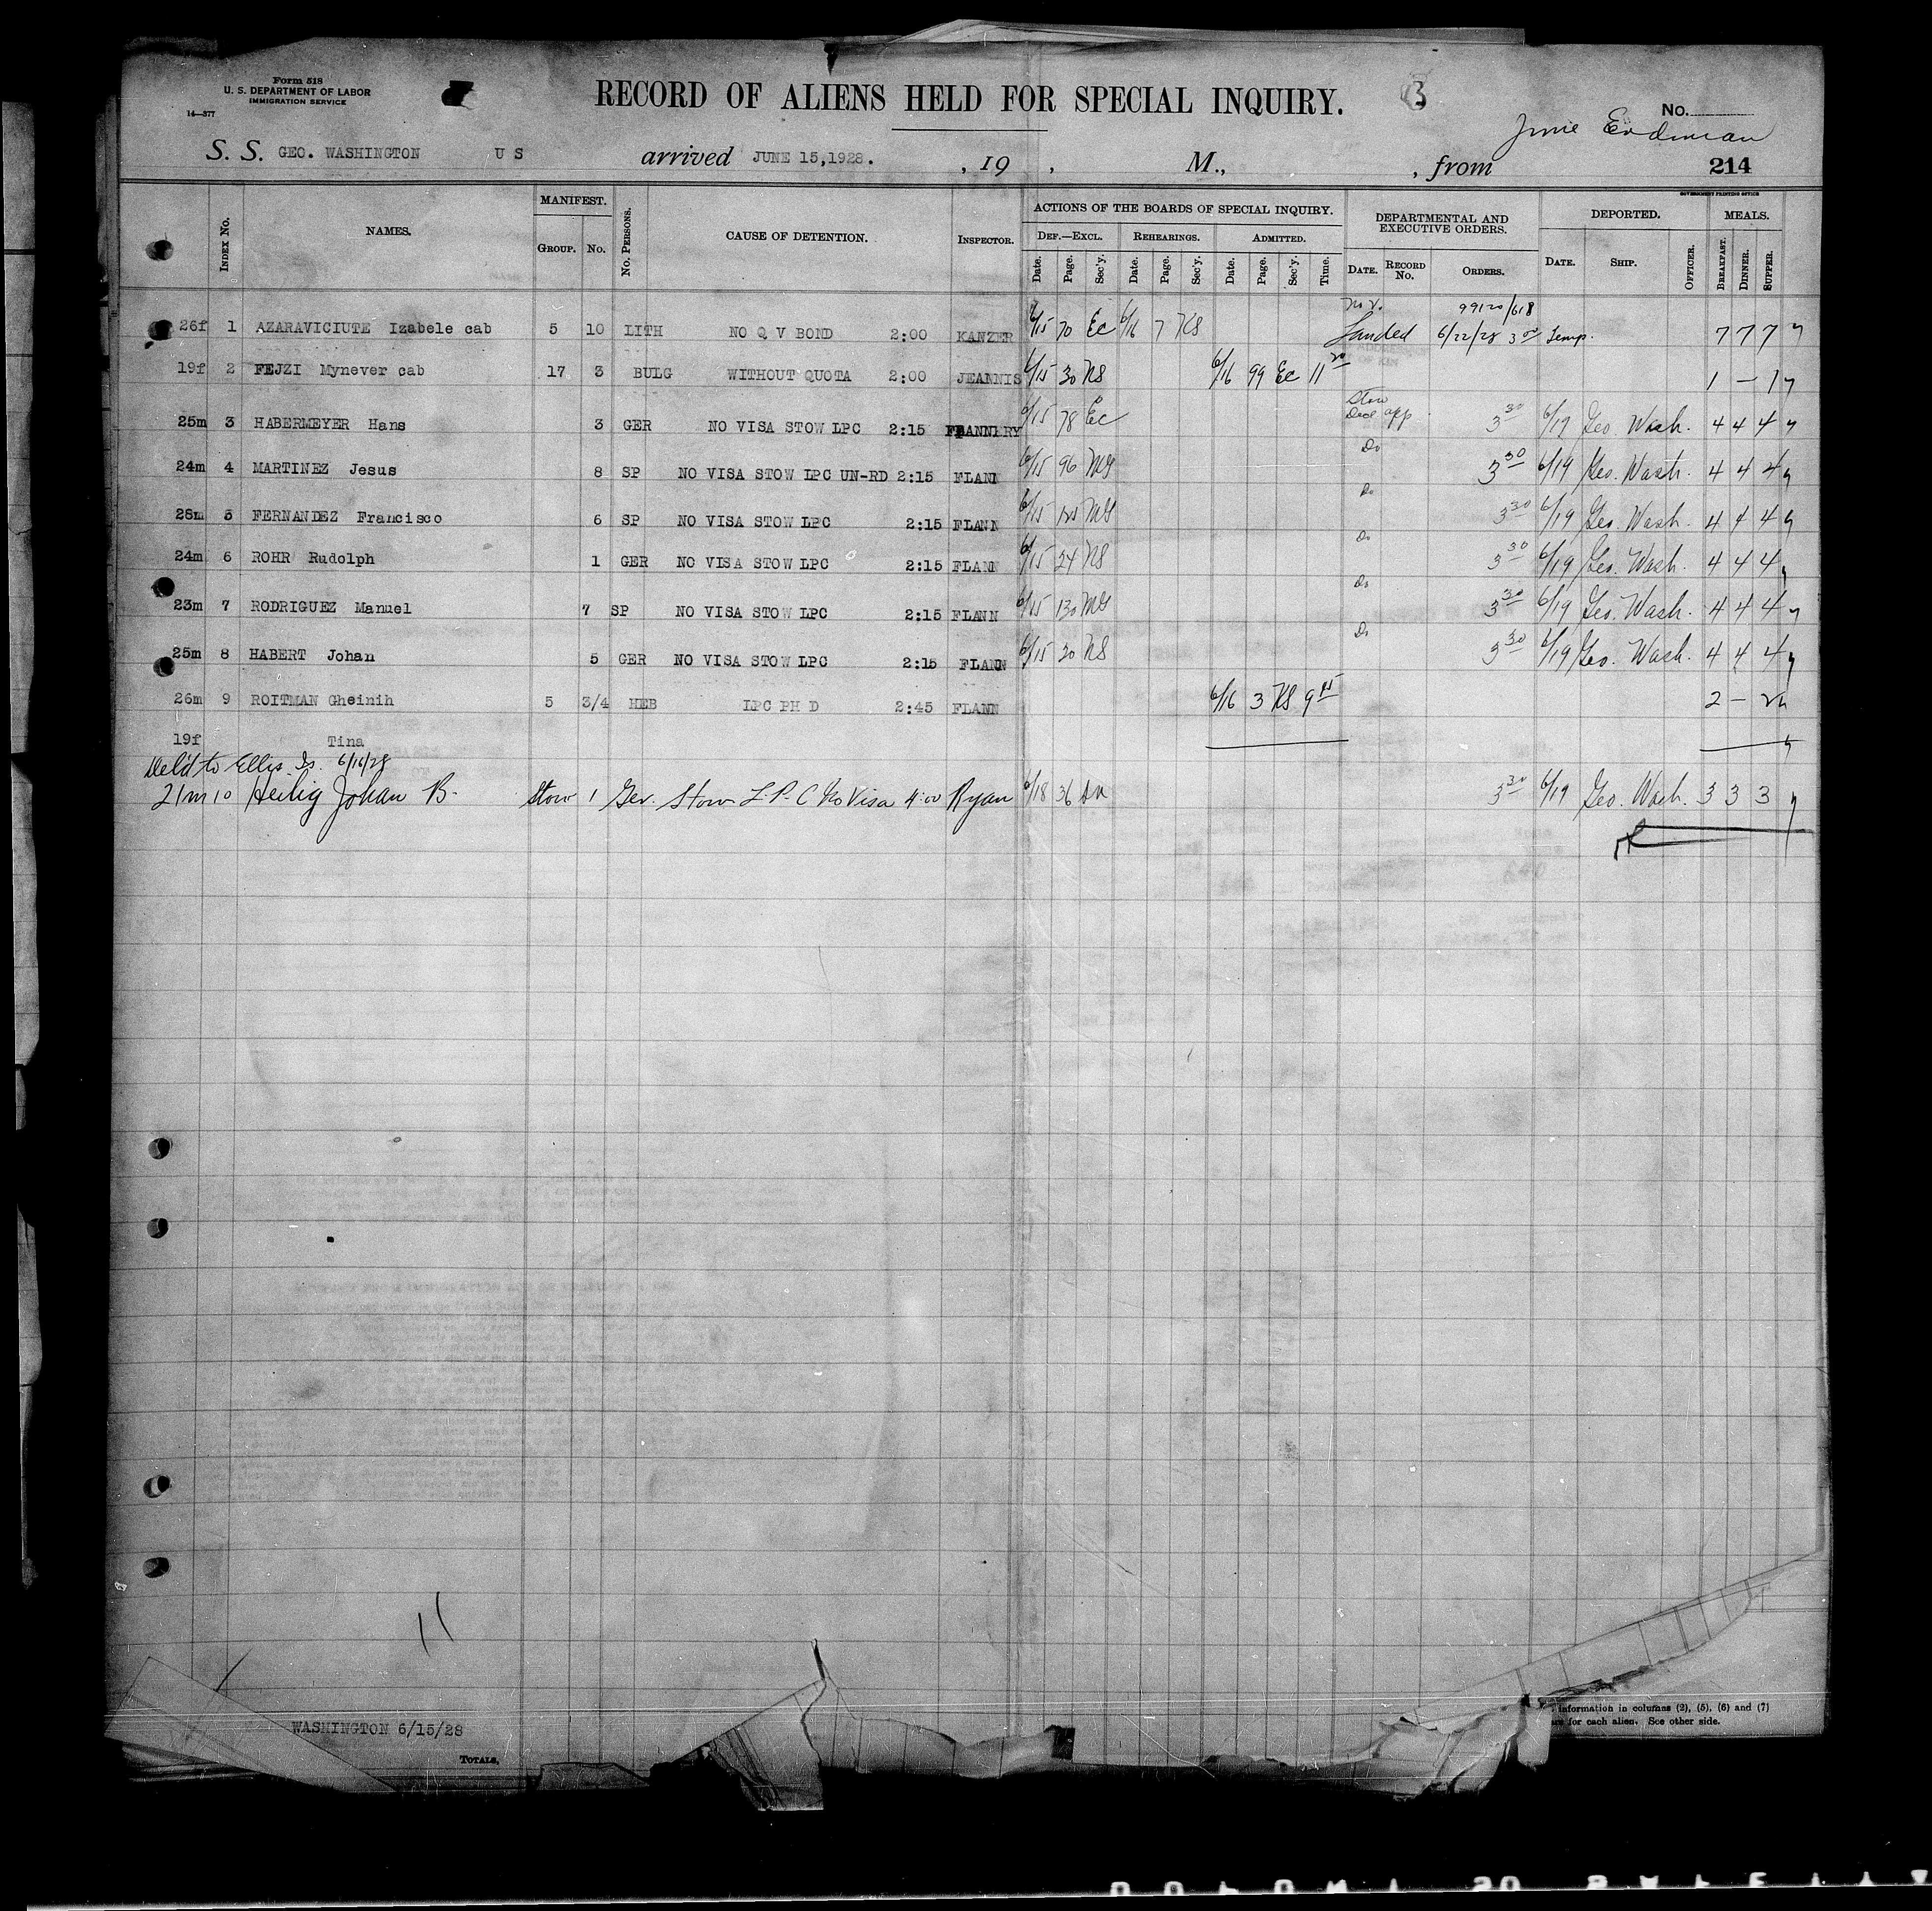 Form 518
U. S. DEPARTMENT OF LABOR
IMMIGRATION SERVICE
14—377
RECORD OF ALIENS HELD FOR SPECIAL INQUIRY.
3
No.
S. S. GEO. WASHINGTON U S arrived JUNE 15,1928. , 19 , M., , from
214
GOVERNMENT PRINTING OFFICE
Index No. NAMES. MANIFEST. Group. No. No. Persons. CAUSE OF DETENTION. Inspector. ACTIONS OF THE BOARDS OF SPECIAL INQUIRY. Def.—Excl. Date. Page. Sec'y. Rehearings. Date. Page. Sec'y. Admitted. Date. Page. Sec'y. Time. DEPARTMENTAL AND EXECUTIVE ORDERS. Date. Record No. Orders. DEPORTED. Date. Ship. Officer. MEALS. Breakfast. Dinner. Supper.
99120/618
26f 1 AZARAVICIUTE Izabele cab 5 10 LITH NO Q V BOND 2:00 KANZER 6/15 70 Ec 6/16 7 KS Landed 6/22/28 3 00 Temp. 7 7 7
19f 2 FEJZI Mynever cab 17 3 BULG WITHOUT QUOTA 2:00 JEANNIS 6/15 30 NS 6/16 99 Ec 11 1 — 1
Stow
25m 3 HABERMEYER Hans 3 GER NO VISA STOW LPC 2:15 FLANNERY 6/15 78 Ec app 3 30 Geo. Wash. 4 4 4
24m 4 MARTINEZ Jesus 8 SP NO VISA STOW LPC UN-RD 2:15 FLANN 6/15 96 MG Do 3 30 6/19 Geo. Wash. 4 4 4
28m 5 FERNANDEZ Francisco 6 SP NO VISA STOW LPC 2:15 FLANN 6/15 MG Do 3 30 6/19 Geo. Wash. 4 4 4
24m 6 ROHR Rudolph 1 GER NO VISA STOW LPC 2:15 FLANN 6/15 24 NS Do 3 30 6/19 Geo. Wash. 4 4 4
23m 7 RODRIGUEZ Manuel 7 SP NO VISA STOW LPC 2:15 FLANN 6/15 130 MG Do 3 30 6/19 Geo. Wash. 4 4 4
25m 8 HABERT Johan 5 GER NO VISA STOW LPC 2:15 FLANN 6/15 20 NS Do 3 30 6/19 Geo. Wash. 4 4 4
26m 9 ROITMAN Gheinih 5 3/4 HEB LPC PH D 2:45 FLANN 6/16 3 KS 9 2 — 2
19f Tina
Del'd to Ellis Is. 6/16/28
21m 10 Heilig Johan B. Stow 1 Ger. Stow L.P.C No Visa 4:00 Ryan 6/18 36 3 30 6/19 Geo. Wash. 3 3 3
WASHINGTON 6/15/28
Totals,
information in columns (2), (5), (6) and (7)
for each alien. See other side.